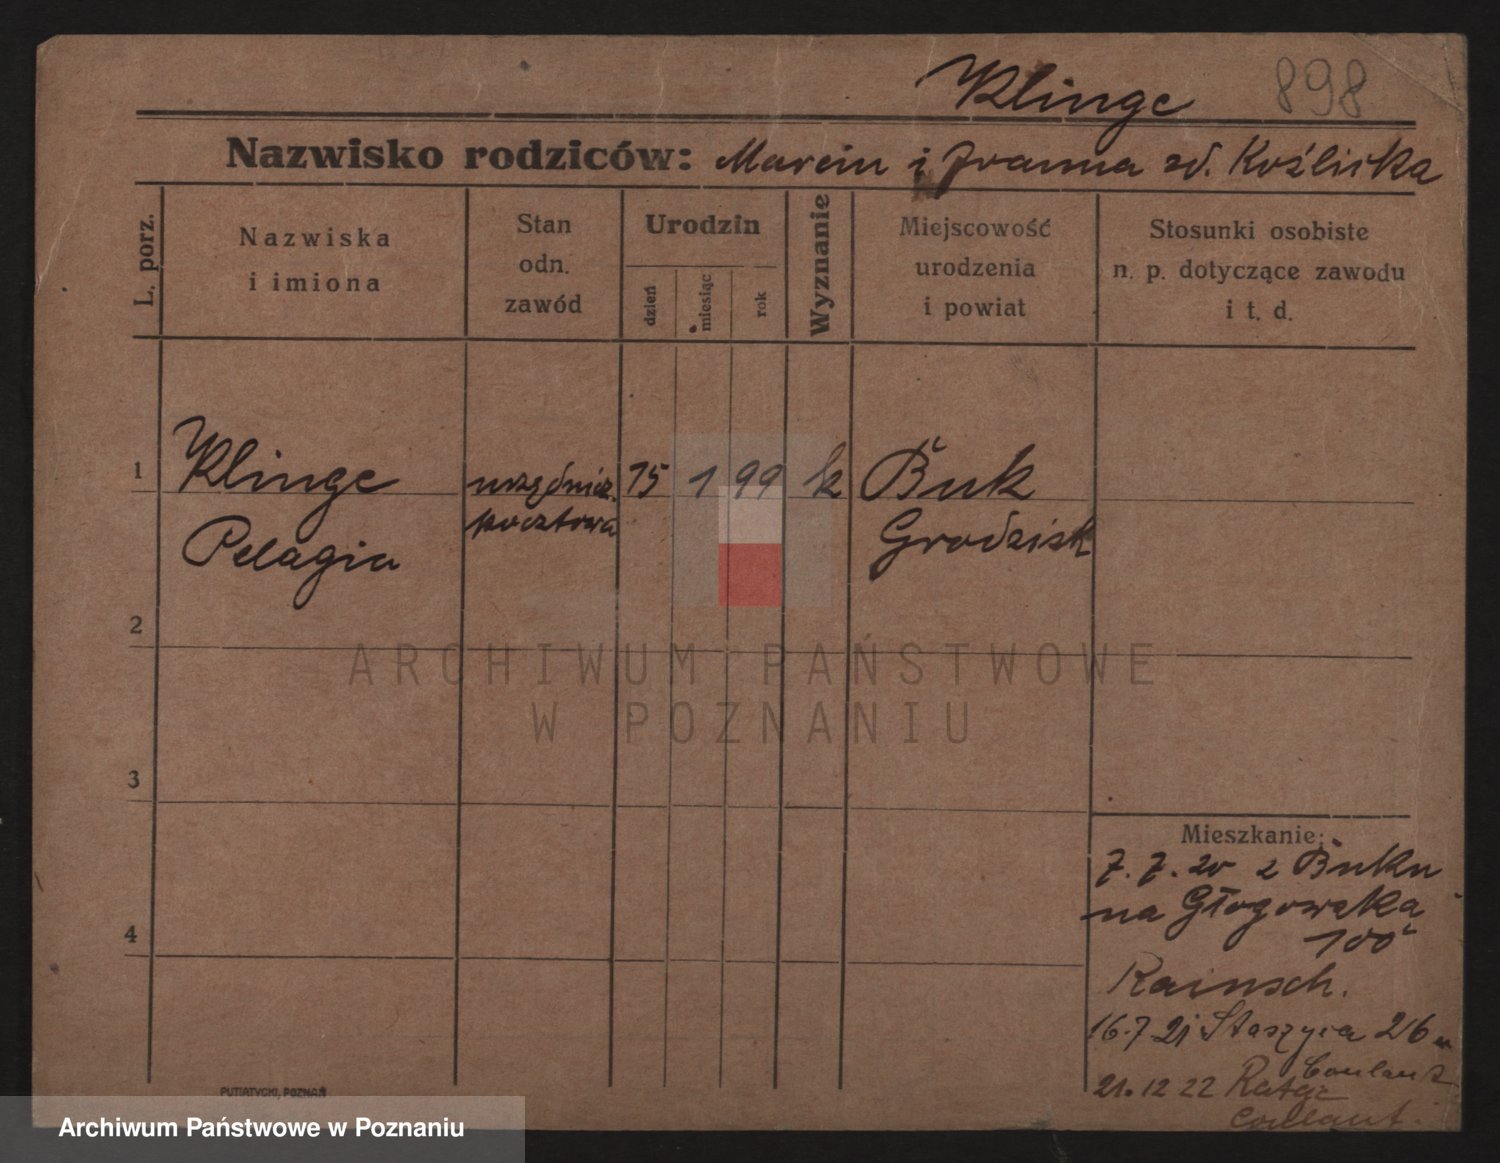 Klinge 898
Nazwisko rodziców: Marcin i Franna zd. Koźlicka
L. porz.
Nazwiska
i imiona
Stan
odn.
zawód
Urodzin
dzień
miesiąc
rok
Wyznanie
Miejscowość
urodzenia
i powiat
Stosunki osobiste
n. p. dotyczące zawodu
i t. d.
1 Klinge urzędnicz. 15 1 99 k Buk
Pelagia pocztowa Grodzisk
2
3
4
Mieszkanie:
7. 7. 20 z Buku
na Głogowska
100
Rainsch.
16.7 21 Staszyca 26
Coulant
21.12 22 Rataj
Coulant.
PUTIATYCKI, POZNAŃ
ARCHIWUM PAŃSTWOWE
W POZNANIU
Archiwum Państwowe w Poznaniu